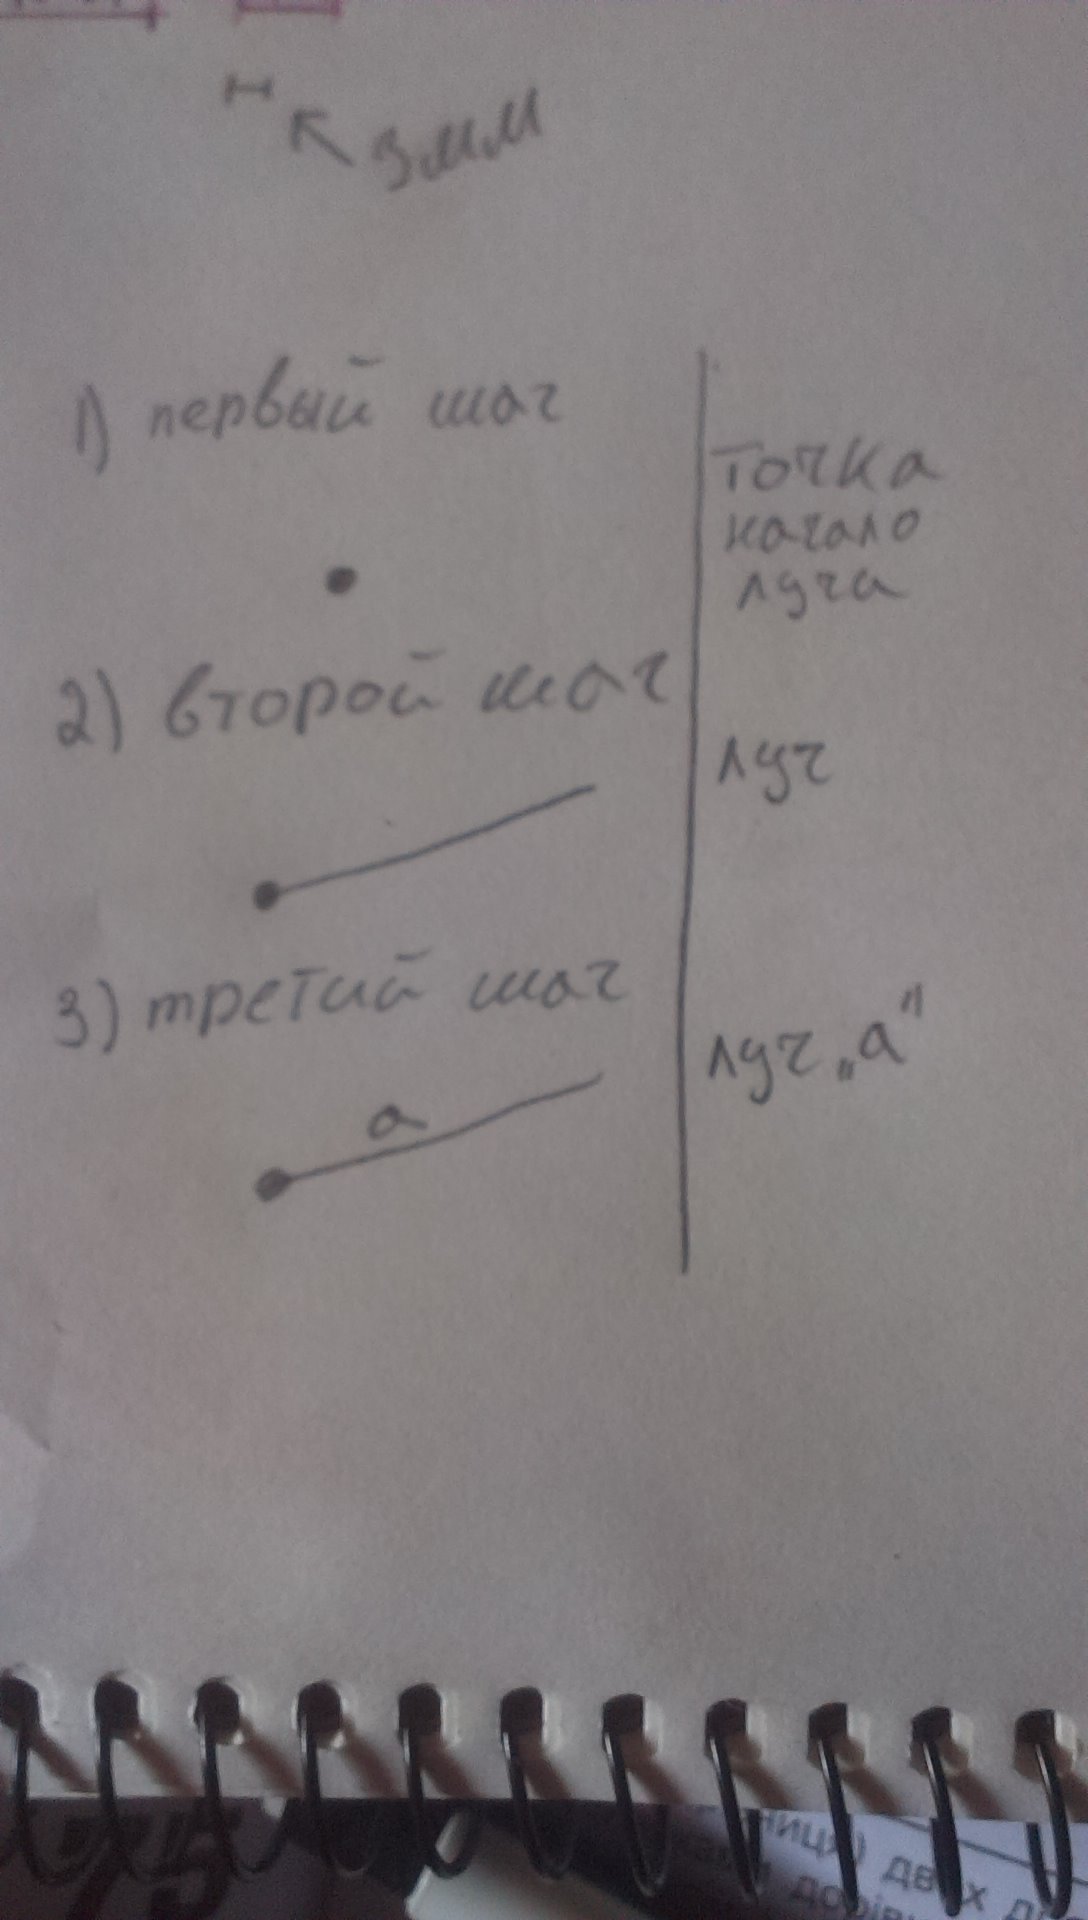 К 3мм
1) первый шаг
точка
начало
луча
2) второй шаг
луч
3) третий шаг
луч „а"
а
двух